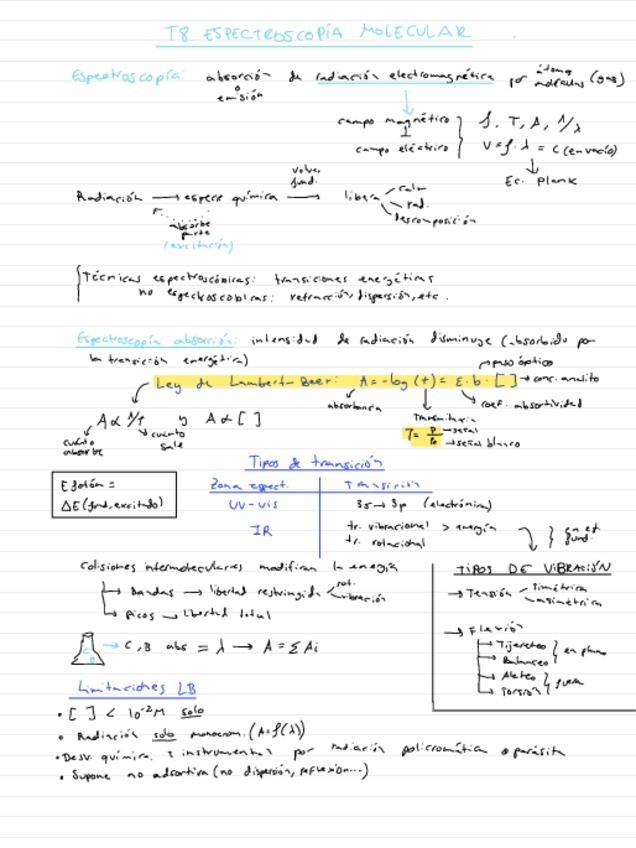 T8 ESPECTROSCOPÍA MOLECULAR
Espectroscopía: absorción o emisión de radiación electromagnética por átomos moléculas (gas)
campo magnético
campo eléctrico
f, T, A, 1/λ
V = f · λ = c (en vacío)
Ec. Plank
Radiación → especie química → libera
volver fund.
calor
rad.
descomposición
absorbe parte
(excitación)
Técnicas espectroscópicas: transiciones energéticas
no espectroscópicas: refracción, dispersión, etc.
Espectroscopía absorción: intensidad de radiación disminuye (absorbido por
la transición energética)
paso óptico
Ley de Lambert-Beer: A = -log (T) = ε · b · [ ] → conc. analito
absorbancia
Transmitancia
coef. absortividad
A ∝ 1/T y A ∝ [ ]
cuánto absorbe
cuánto sale
T = P/P₀ → señal
→ señal blanco
Tipos de transición
E fotón =
ΔE (fund, excitado)
Zona espect. Transición
UV-vis 3s → 3p (electrónica)
IR tr. vibracional > energía
tr. rotacional
en est. fund.
Colisiones intermoleculares modifican la energía
Bandas → libertad restringida
rot.
vibración
Picos → libertad total
C, B abs = λ → A = Σ Ai
C
B
TIPOS DE VIBRACIÓN
→ Tensión
simétrica
asimétrica
→ Flexión
Tijereteo
Balanceo
en plano
Aleteo
Torsión
fuera
Limitaciones LB
• [ ] < 10⁻²M solo
• Radiación solo monocrom. (A = f(λ))
• Desv. química e instrumental por radiación policromática o parásita
• Supone no adsortiva (no dispersión, reflexión...)